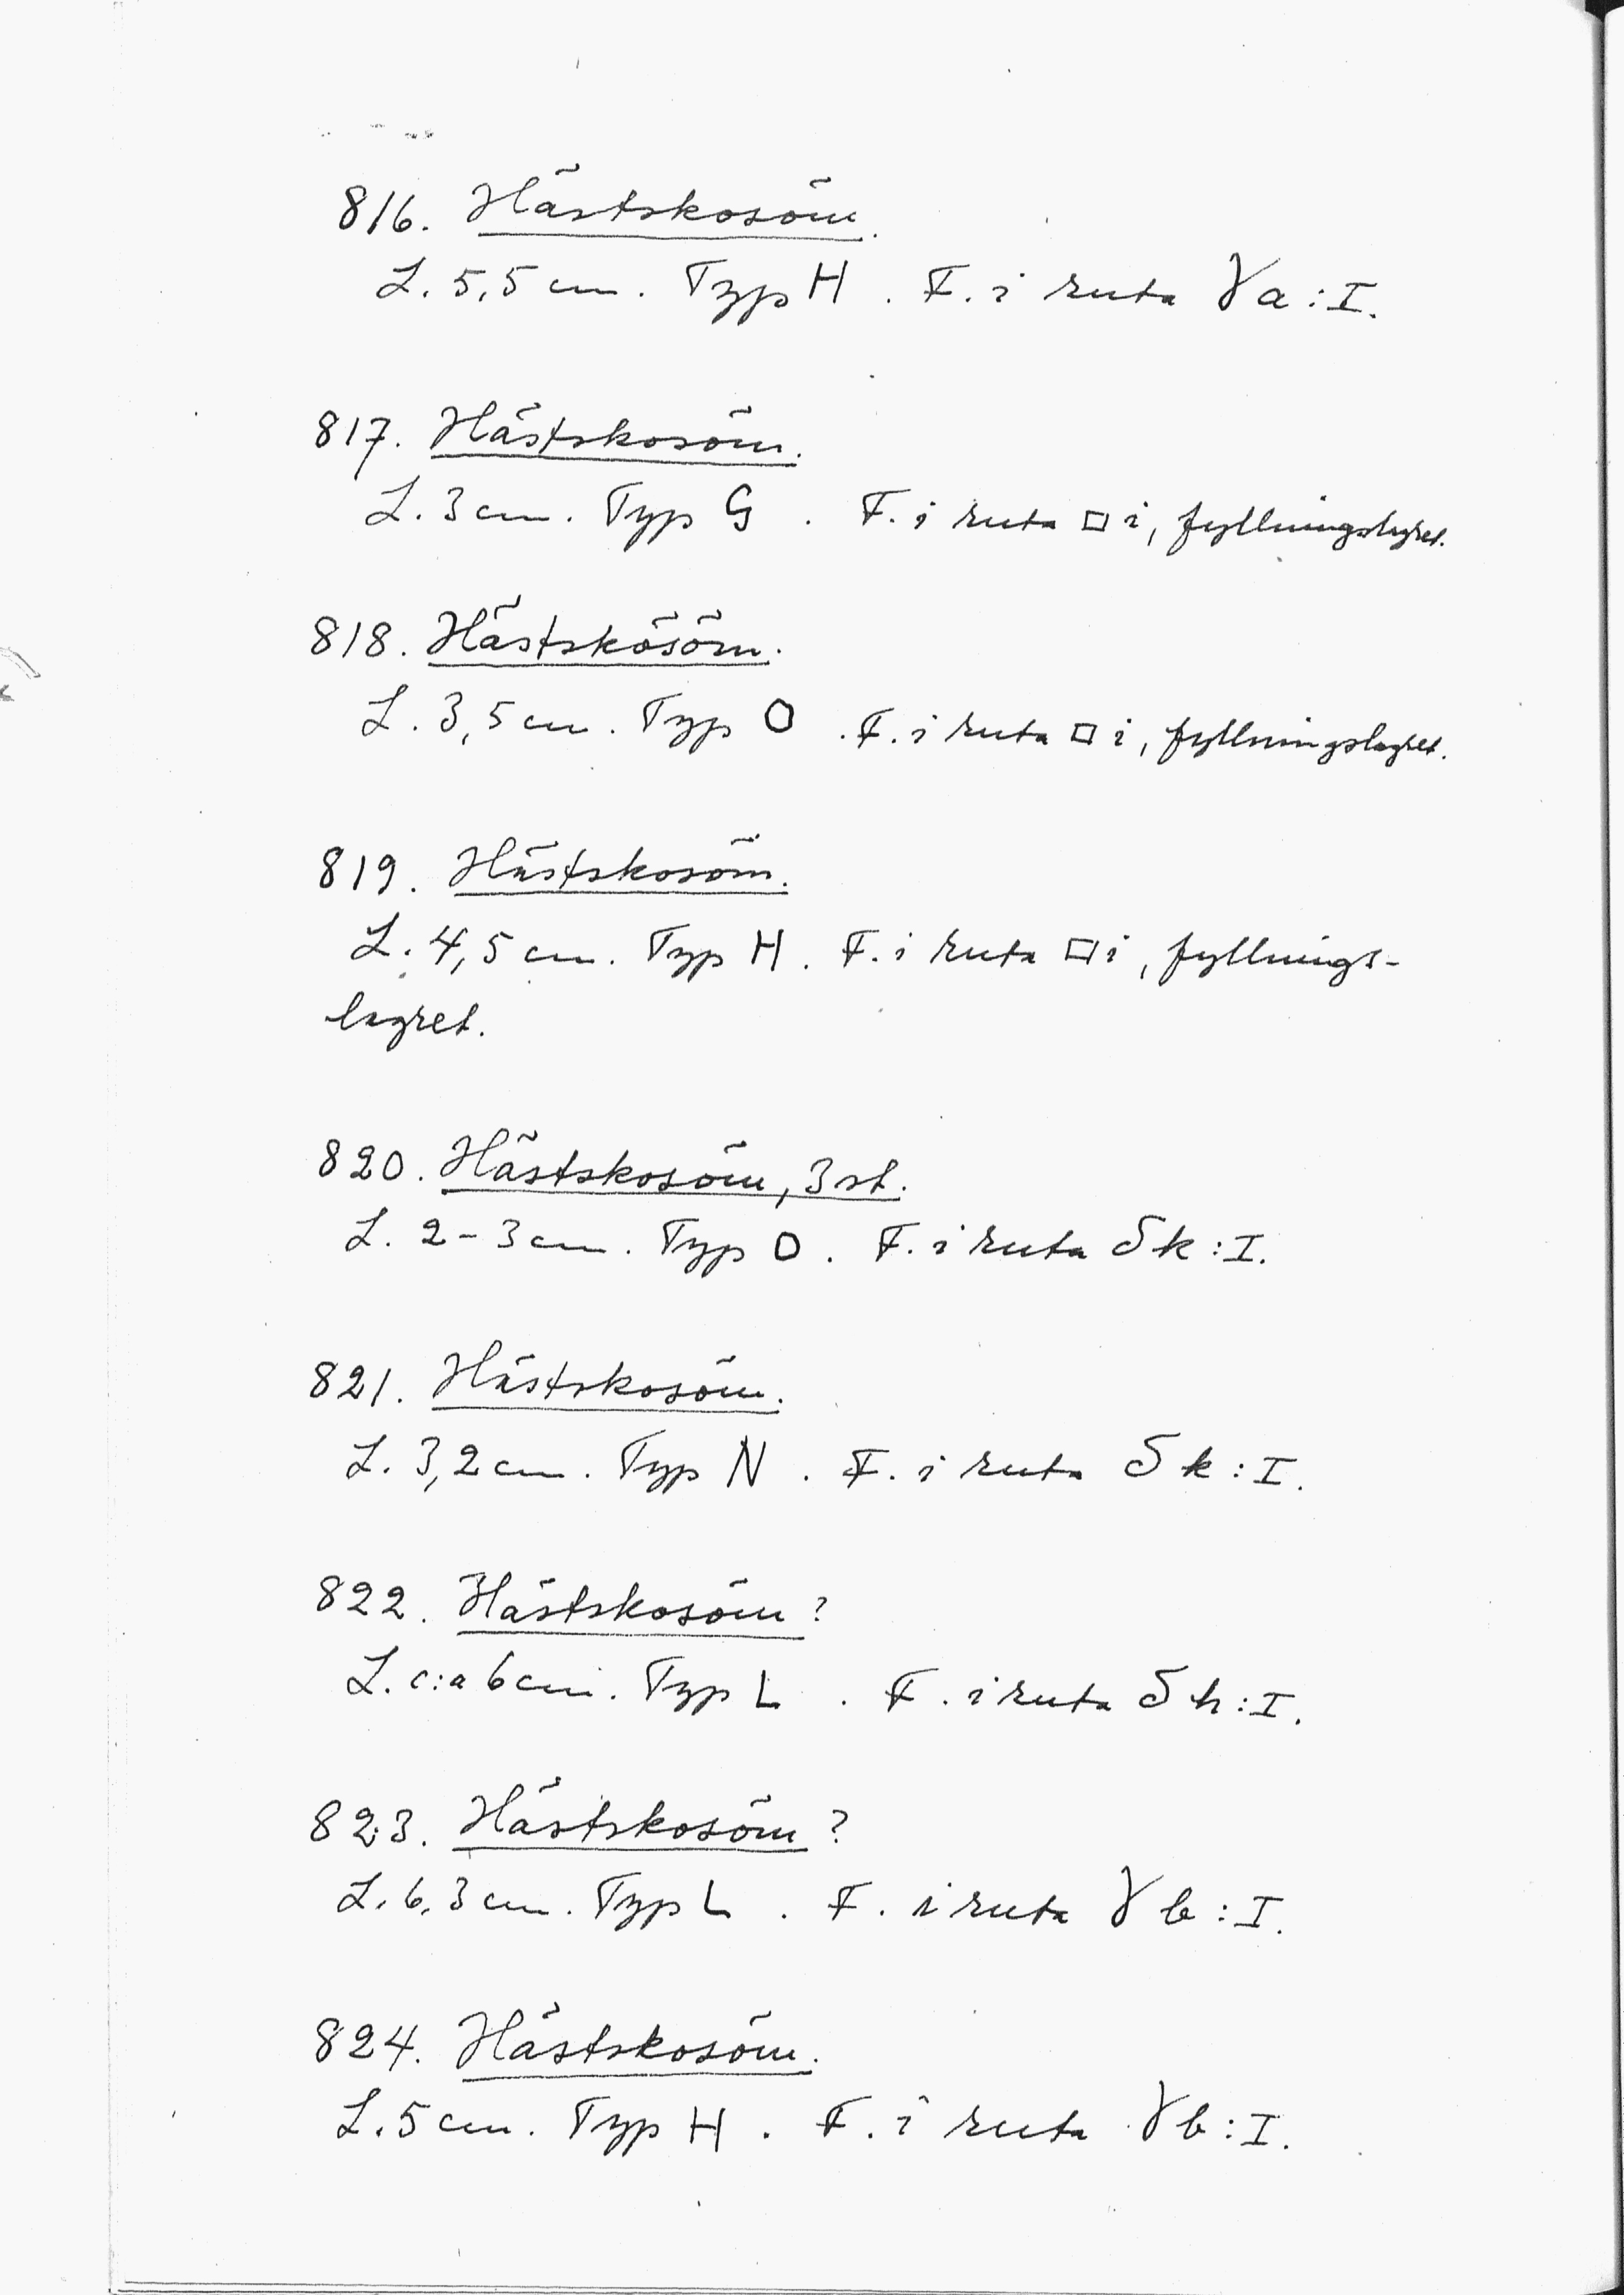 816. Hästskosöm.
L. 5,5 cm. Typ H. F. i ruta γ a : I.
817. Hästskosöm.
L. 3 cm. Typ G. F. i ruta □ i, fyllningslagret.
818. Hästskösöm.
L. 3,5 cm. Typ O. F. i ruta □ i, fyllningslagret.
819. Hästskosöm.
L. 4,5 cm. Typ H. F. i ruta □ i, fyllnings-
lagret.
820. Hästskosöm, 3 st.
L. 2-3 cm. Typ O. F. i ruta δ k : I.
821. Hästskosöm.
L. 3,2 cm. Typ N. F. i ruta δ k : I.
822. Hästskosöm?
L. c:a 6 cm. Typ L. F. i ruta δ h : I.
823. Hästskosöm?
L. 6,3 cm. Typ L. F. i ruta γ b : I.
824. Hästskosöm.
L. 5 cm. Typ H. F. i ruta γ b : I.